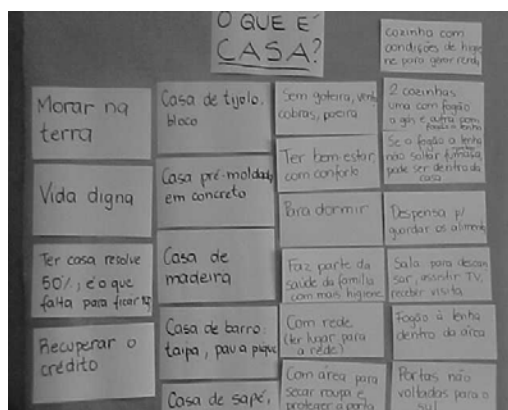 O QUE É
CASA?
Morar na
terra
Vida digna
Ter casa resolve
50%, é o que
falta para ficar
Recuperar o
crédito
Casa de tijolo,
bloco
Casa pré-moldada
em concreto
Casa de
madeira
Casa de barro:
taipa, pau a pique
Casa de sapé,
Sem goteira, vento
cobras, poeira
Ter bem estar,
com conforto
Para dormir
Faz parte da
saúde da família
com mais higiene
Com rede
(ter lugar para
a rede)
Com área para
secar roupa e
proteger a porta
cozinha com
condições de higie
ne para gerar renda
2 cozinhas
uma com fogão
a gás e outra com
fogão a lenha
Se o fogão a lenha
não soltar fumaça,
pode ser dentro da
casa
Despensa p/
guardar os alimentos
Sala para descan
sar, assistir TV,
receber visita
Fogão à lenha
dentro da área
Portas não
voltadas para o
sul